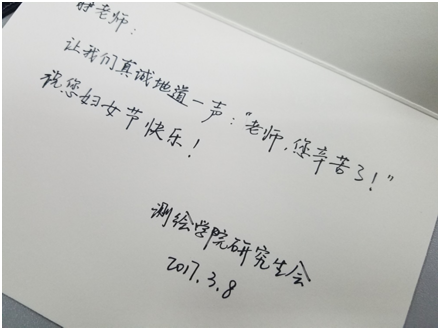 老师:
让我们真诚地道一声:“老师,您辛苦了!”
祝您妇女节快乐!
测绘学院研究生会
2017.3.8